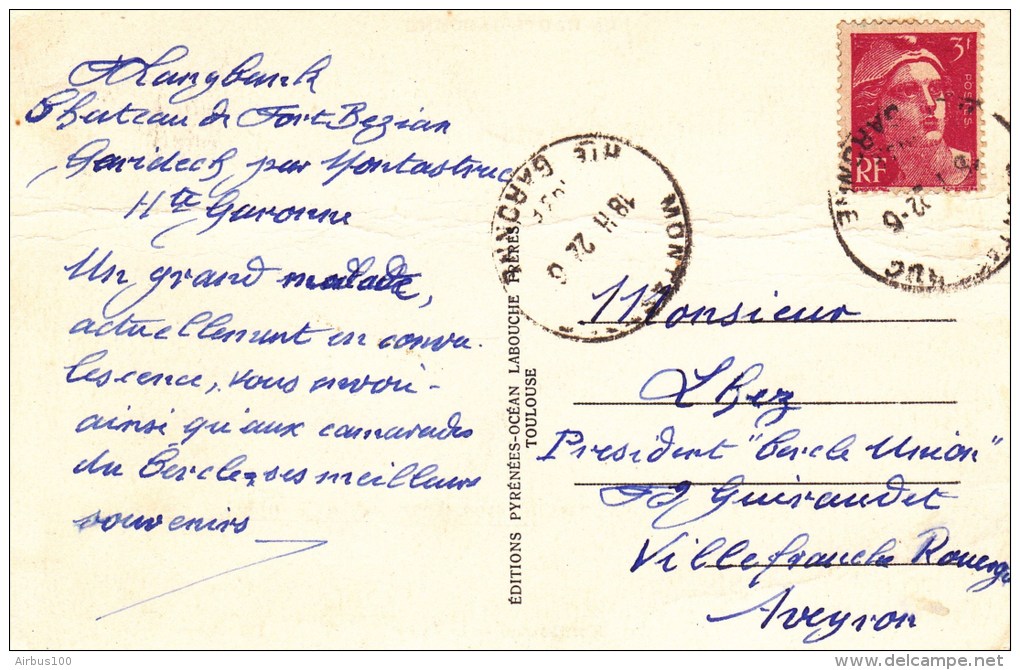 Chateau de Fort Bezian
Gardech par Montastruc
Hte Garonne
Un grand malade,
actuellement en conva-
lescence, vous envoi-
ainsi qu'aux camarades
du Cercle, ses meilleurs
souvenirs
ÉDITIONS PYRÉNÉES-OCÉAN LABOUCHE FRÈRES
TOULOUSE
3f
POSTES
RF
HTE GARONNE
18H 22-6
MONTAS
GARONNE
22-6
Monsieur
Lhez
President "Cercle Union"
Guiraudet
Villefranche Rouergue
Aveyron
Airbus100
www.delcampe.net